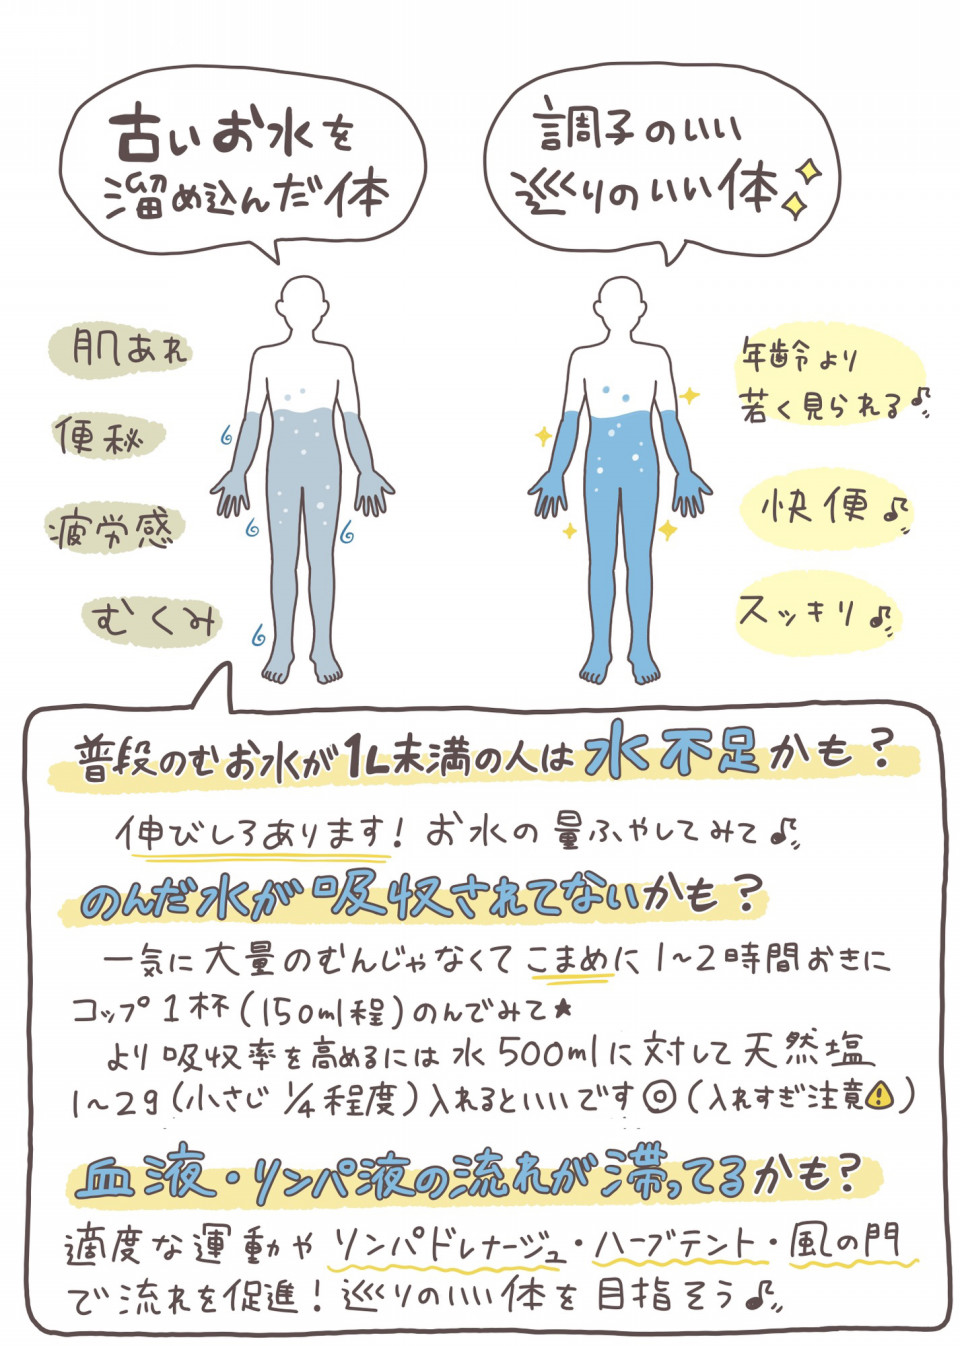 古いお水を
溜め込んだ体
調子のいい
巡りのいい体
肌あれ
便秘
疲労感
むくみ
年齢より
若く見られる♪
快便♪
スッキリ♪
普段のむお水が1L未満の人は水不足かも?
伸びしろあります!お水の量ふやしてみて♪
のんだ水が吸収されてないかも?
一気に大量のむんじゃなくてこまめに1~2時間おきに
コップ1杯(150ml程)のんでみて★
より吸収率を高めるには水500mlに対して天然塩
1~2g(小さじ1/4程度)入れるといいです◎(入れすぎ注意⚠)
血液・リンパ液の流れが滞ってるかも?
適度な運動やリンパドレナージュ・ハーブテント・風の門
で流れを促進!巡りのいい体を目指そう♪